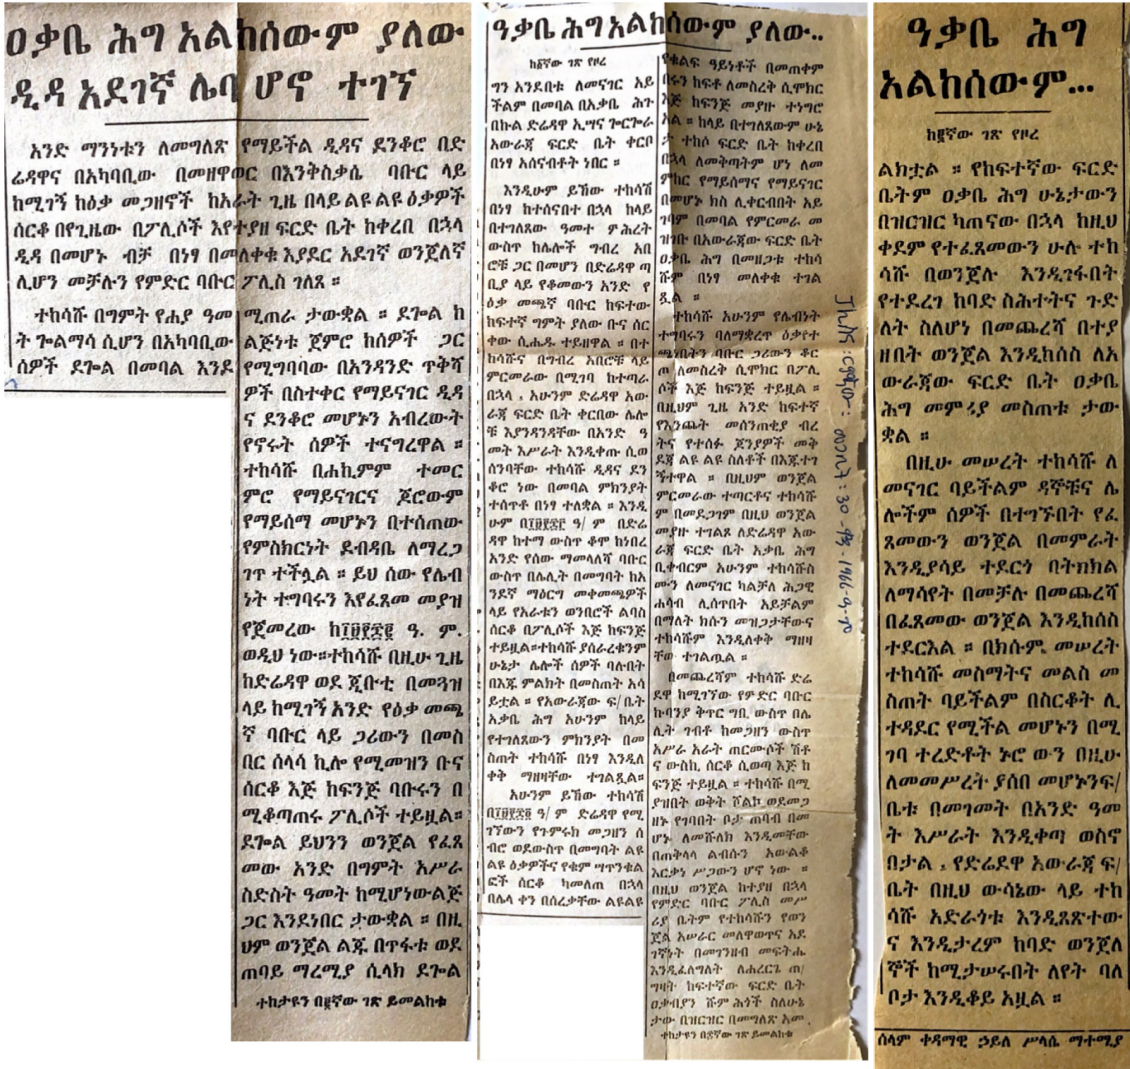 ዐቃቤ ሕግ አልከሰውም ያለው
ዲዳ አደገኛ ሌባ ሆኖ ተገኘ
አንድ ማንነቱን ለመግለጽ የማይችል ዲዳና ደንቆሮ በድ
ሬዳዋና በአካባቢው በመዘዋወር በእንቅስቃሴ ባቡር ላይ
ከሚገኝ ከዕቃ መጋዘኖች ከአራት ጊዜ በላይ ልዩ ልዩ ዕቃዎች
ሰርቆ በየጊዜው በፖሊሶች እየተያዘ ፍርድ ቤት ከቀረበ በኋላ
ዲዳ በመሆኑ ብቻ በነፃ በመለቀቁ እያደር አደገኛ ወንጀለኛ
ሊሆን መቻሉን የምድር ባቡር ፖሊስ ገለጸ ።
ተከሳሹ በግምት የሐያ ዓመ
ት ጐልማሳ ሲሆን በአካባቢው
ሰዎች ደጐል በመባል እንደ
ሚጠራ ታውቋል ። ደጐል ከ
ልጅነቱ ጀምሮ ከሰዎች ጋር
የሚግባባው በአንዳንድ ጥቅሻ
ዎች በስተቀር የማይናገር ዲዳ
ና ደንቆሮ መሆኑን አብረውት
የኖሩት ሰዎች ተናግረዋል ።
ተከሳሹ በሐኪምም ተመር
ምሮ የማይናገርና ጆሮውም
የማይሰማ መሆኑን በተሰጠው
የምስክርነት ደብዳቤ ለማረጋ
ገጥ ተችሏል ። ይህ ሰው የሌብ
ነት ተግባሩን እየፈጸመ መያዝ
የጀመረው ዓ. ም.
ወዲህ ነው።ተከሳሹ በዚሁ ጊዜ
ከድሬዳዋ ወደ ጂቡቲ በመጓዝ
ላይ ከሚገኝ አንድ የዕቃ መጫ
ኛ ባቡር ላይ ጋሪውን በመስ
በር ሰላሳ ኪሎ የሚመዝን ቡና
ሰርቆ እጅ ከፍንጅ ባቡሩን በ
ሚቆጣጠሩ ፖሊሶች ተይዟል።
ደጐል ይህንን ወንጀል የፈጸ
መው አንድ በግምት አሥራ
ስድስት ዓመት ከሚሆነው ልጅ
ጋር እንደነበር ታውቋል ። በዚ
ህም ወንጀል ልጁ በጥፋቱ ወደ
ጠባይ ማረሚያ ሲላክ ደጐል
ተከታዩን በ፪ኛው ገጽ ይመልከቱ
ዓቃቤ ሕግ አልከሰውም ያለው..
ከ፩ኛው ገጽ የዞረ
ግን አንደበቱ ለመናገር አይ
ችልም በመባል በአቃቤ ሕጉ
በኩል ድሬዳዋ ኢሣና ጉርጉራ
አውራጃ ፍርድ ቤት ቀርቦ
በነፃ አሰናብቶት ነበር ።
እንዲሁም ይኸው ተከሳሽ
በነፃ ከተሰናበተ በኋላ ከላይ
በተገለጸው ዓመተ ምሕረት
ውስጥ ከሌሎች ግብረ አበ
ሮቹ ጋር በመሆን በድሬዳዋ ጣ
ቢያ ላይ የቆመውን አንድ የ
ዕቃ መጫኛ ባቡር ከፍተው
ከፍተኛ ግምት ያለው ቡና ሰር
ቀው ሲሔዱ ተይዘዋል ። በተ
ከሳሹና በግብረ አበሮቹ ላይ
ምርመራው በሚገባ ከተጣራ
በኋላ ፡ አሁንም ድሬዳዋ አው
ራጃ ፍርድ ቤት ቀርበው ሌሎ
ቹ እያንዳንዳቸው በአንድ ዓ
መት እሥራት እንዲቀጡ ሲወ
ሰንባቸው ተከሳሹ ዲዳና ደን
ቆሮ ነው በመባል ምክንያት
ተሰጥቶ በነፃ ተለቋል ። እንዲ
ሁም ዓ/ ም በድሬ
ዳዋ ከተማ ውስጥ ቆሞ ከነበረ
አንድ የሰው ማመላለሻ ባቡር
ውስጥ በሌሊት በመግባት ከአ
ንደኛ ማዕርግ መቀመጫዎች
ላይ የአራቱን ወንበሮች ልባስ
ሰርቆ በፖሊሶች እጅ ከፍንጅ
ተይዟል።ተከሳሹ ያሰራረቁንም
ሁኔታ ሌሎች ሰዎች ባሉበት
በእጁ ምልክት በመስጠት አሳ
ይቷል ። የአውራጃው ፍ/ ቤት
አቃቤ ሕግ አሁንም ከላይ
የተገለጸውን ምክንያት በመ
ስጠት ተከሳሹ በነፃ እንዲለ
ቀቅ ማዘዛቸው ተገልጿል።
አሁንም ይኸው ተከሳሽ
ዓ/ ም ድሬዳዋ የሚ
ገኘውን የጉምሩክ መጋዘን ሰ
ብሮ ወደውስጥ በመግባት ልዩ
ልዩ ዕቃዎችና የቁም ሣጥን ቁል
ፎች ሰርቆ ካመለጠ በኋላ
በሌላ ቀን በሰረቃቸው ልዩ ልዩ
የቁልፍ ዓይነቶች በመጠቀም
በሩን ከፍቶ ለመስረቅ ሲሞክር
እጅ ከፍንጅ መያዙ ተነግሮ
አል ። ከላይ በተገለጸውም ሁኔ
ታ ተከሶ ፍርድ ቤት ከቀረበ
በኋላ ለመቅጣትም ሆነ ለመ
ምከር የማይሰማና የማይናገር
በመሆኑ ክስ ሊቀርብበት አይ
ገባም በመባል የምርመራ መ
ዝገቡ በአውራጃው ፍርድ ቤት
ዐቃቤ ሕግ በመዘጋቱ ተከሳ
ሹም በነፃ መለቀቁ ተገል
ጿል ።
ተከሳሹ አሁንም የሌብነት
ተግባሩን ባለማቋረጥ ዕቃየተ
ጫነበትን ባቡር ጋሪውን ቆር
ጦ ለመስረቅ ሲሞክር በፖሊ
ሶች እጅ ከፍንጅ ተይዟል ።
በዚህም ጊዜ አንድ ከፍተኛ
የእንጨት መሰንጠቂያ ብረ
ትና የተሰፉ ጆንያዎች መቅ
ደጃ ልዩ ልዩ ስለቶች በእጁተገ
ኝተዋል ። በዚህም ወንጀል
ምርመራው ተጣርቶና ተከሳሹ
ም በመደጋገም በዚህ ወንጀል
መያዙ ተገልጾ ለድሬዳዋ አው
ራጃ ፍርድ ቤት አቃቤ ሕግ
ቢቀብርም አሁንም ተከሳሹስ
ሙን ለመናገር ካልቻለ ሕጋዊ
ሐሳብ ሊሰጥበት አይቻልም
በማለት ክሱን መዝጋታቸውና
ተከሳሹም እንዲለቀቅ ማዘዛ
ቸው ተገልጧል ።
በመጨረሻም ተከሳሹ ድሬ
ደዋ ከሚገኘው የምድር ባቡር
ኩባንያ ቅጥር ግቢ ውስጥ በሌ
ሊት ገብቶ ከመጋዘን ውስጥ
አሥራ አራት ጠርሙሶች ሽቶ
ና ውስኪ ሰርቆ ሲወጣ እጅ ከ
ፍንጅ ተይዟል ። ተከሳሹ በሚ
ያዝበት ወቅት ሾልኮ ወደመጋ
ዘኑ የገባበት ቦታ ጠባብ በመ
ሆኑ ለመሹለክ እንዲመቸው
በጠቅላላ ልብሱን አውልቆ
እርቃነ ሥጋውን ሆኖ ነው ።
በዚህ ወንጀል ከተያዘ በኋላ
የምድር ባቡር ፖሊስ መሥ
ሪያ ቤትም የተከሳሹን የወን
ጀል አሠራር መለዋወጥና አደ
ገኛነት በመገንዘብ መፍትሔ
እንዲፈለግለት ለሐረርጌ ጠ/
ግዛት ከፍተኛው ፍርድ ቤት
ዐቃብያን ሹም ሕጎች ስለሁኔ
ታው በዝርዝር በመግለጽ አመ
ተከታዩን በ፭ኛው ገጽ ይመልከቱ
30 - 1966
ዓቃቤ ሕግ
አልከሰውም...
ከ፪ኛው ገጽ የዞረ
ልክቷል ። የከፍተኛው ፍርድ
ቤትም ዐቃቤ ሕግ ሁኔታውን
በዝርዝር ካጠናው በኋላ ከዚህ
ቀደም የተፈጸመውን ሁሉ ተከ
ሳሹ በወንጀሉ እንዲገፋበት
የተደረገ ከባድ ስሕተትና ጉድ
ለት ስለሆነ በመጨረሻ በተያ
ዘበት ወንጀል እንዲከሰስ ለአ
ውራጃው ፍርድ ቤት ዐቃቤ
ሕግ መምሪያ መስጠቱ ታው
ቋል ።
በዚሁ መሠረት ተከሳሹ ለ
መናገር ባይችልም ዳኞቹና ሌ
ሎችም ሰዎች በተገኙበት የፈ
ጸመውን ወንጀል በመምራት
እንዲያሳይ ተደርጎ በትክክል
ለማሳየት በመቻሉ በመጨረሻ
በፈጸመው ወንጀል እንዲከሰስ
ተደርእል ። በክሱም መሠረት
ተከሳሹ መስማትና መልስ መ
ስጠት ባይችልም በስርቆት ሊ
ተዳደር የሚችል መሆኑን በሚ
ገባ ተረድቶት ኑሮ ውን በዚሁ
ለመመሥረት ያሰበ መሆኑንፍ/
ቤቱ በመገመት በአንድ ዓመ
ት እሥራት እንዲቀጣ ወስኖ
በታል ፡ የድሬደዋ አውራጃ ፍ/
ቤት በዚህ ውሳኔው ላይ ተከ
ሳሹ አድራጎቱ እንዲጸጽተው
ና እንዲታረም ከባድ ወንጀለ
ኞች ከሚታሠሩበት ለየት ባለ
ቦታ እንዲቆይ አዟል ።
ሰላም ቀዳማዊ ኃይለ ሥላሴ ማተሚያ